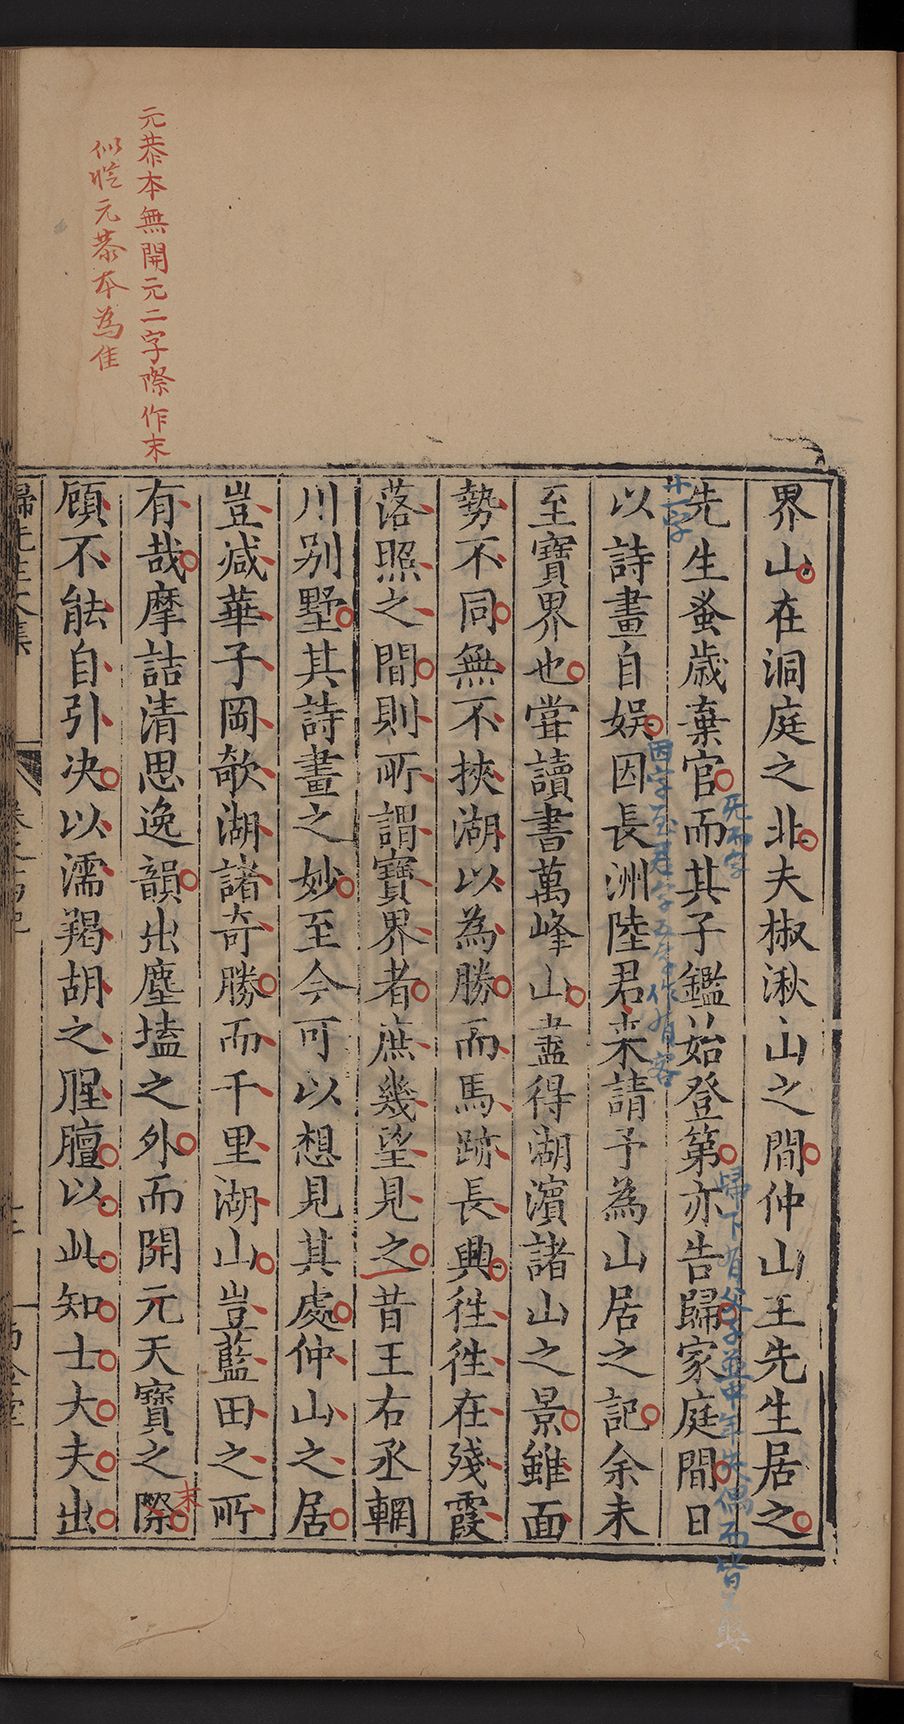 元恭本無開元二字際作末
似從元恭本為佳
界山在洞庭之北夫椒湫山之間仲山王先生居之
先生蚤歲棄官而其子鑑始登第亦告歸家庭間日
以詩畫自娛因長洲陸君来請予為山居之記余未
至寶界也嘗讀書萬峰山盡得湖濱諸山之景雖面
勢不同無不挾湖以為勝而馬跡長興徃徃在殘霞
落照之間則所謂寶界者庶幾望見之昔王右丞輞
川别墅其詩畫之妙至今可以想見其處仲山之居
豈減華子岡欹湖諸奇勝而千里湖山豈藍田之所
有哉摩詰清思逸韻出塵壒之外而開元天寶之際
末
顧不能自引决以濡羯胡之腥膻以此知士大夫出
歸下有
並中年失偶而皆不娶
廿一字
无而字
因字至君字五字作有客